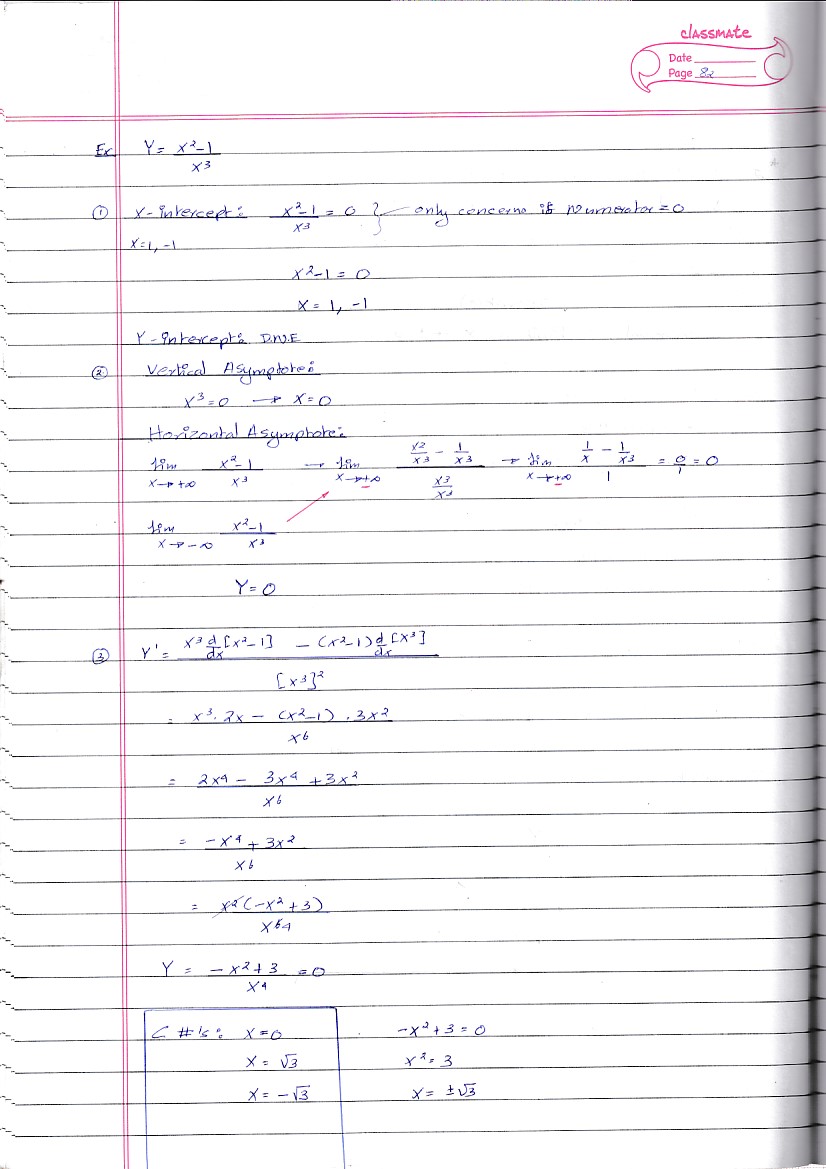 classmate
Date
Page 82
Ex Y = x²-1 / x³
① X-intercept: x²-1 / x³ = 0 } only concerns if Numerator = 0
x=1, -1
x²-1 = 0
x = 1, -1
Y-intercept: D.N.E
② Vertical Asymptote:
x³=0 → x=0
Horizontal Asymptote:
lim x→+∞ x²-1 / x³ → lim x→±∞ (x²/x³ - 1/x³) / (x³/x³) → lim x→±∞ (1/x - 1/x³) / 1 = 0/1 = 0
lim x→-∞ x²-1 / x³
Y = 0
③ Y' = x³ d/dx [x²-1] - (x²-1) d/dx [x³] / [x³]²
= x³·2x - (x²-1)·3x² / x⁶
= 2x⁴ - 3x⁴ + 3x² / x⁶
= -x⁴ + 3x² / x⁶
= x²(-x²+3) / x⁶ ⁴
Y = -x²+3 / x⁴ = 0
C #'s: x=0 -x²+3=0
x = √3 x²=3
x = -√3 x = ±√3